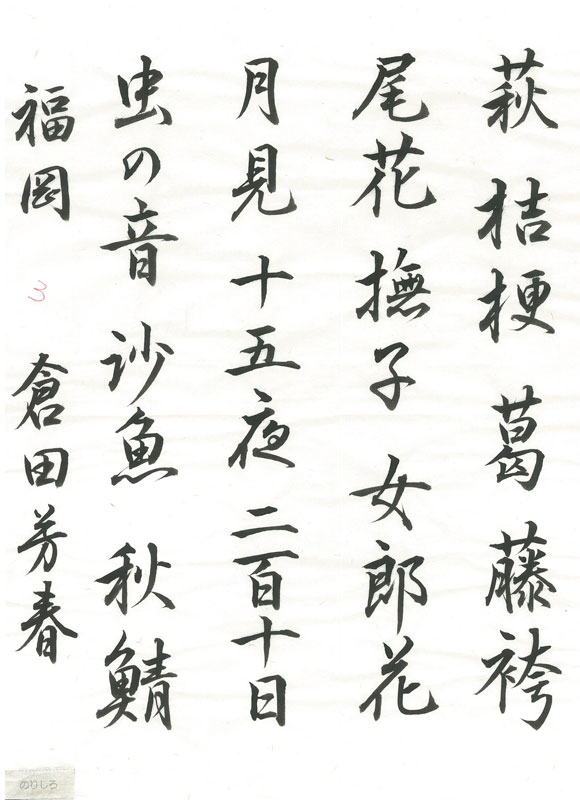 萩 桔梗 葛 藤袴
尾花 撫子 女郎花
月見 十五夜 二百十日
虫の音 沙魚 秋鯖
福岡 3 倉田芳春
のりしろ